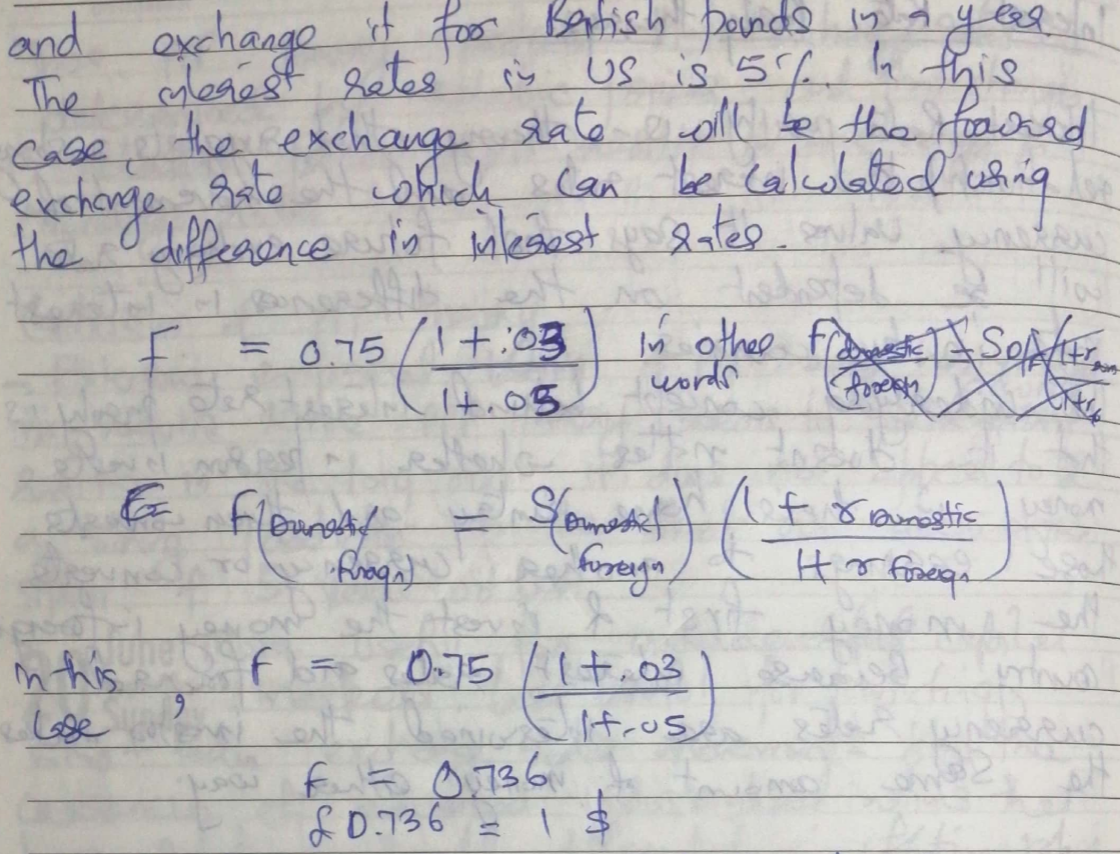 and exchange it for British pounds in a year
The interest rates in US is 5%. In this
case, the exchange rate will be the forward
exchange rate which can be calculated using
the difference in interest rates.
F = 0.75 (1 + .03 / 1 + .05) in other words
F(Domestic/foreign) = S(Domestic/foreign) (1 + r Domestic / 1 + r foreign)
In this case, F = 0.75 (1 + .03 / 1 + .05)
F = 0.736
£0.736 = 1 $